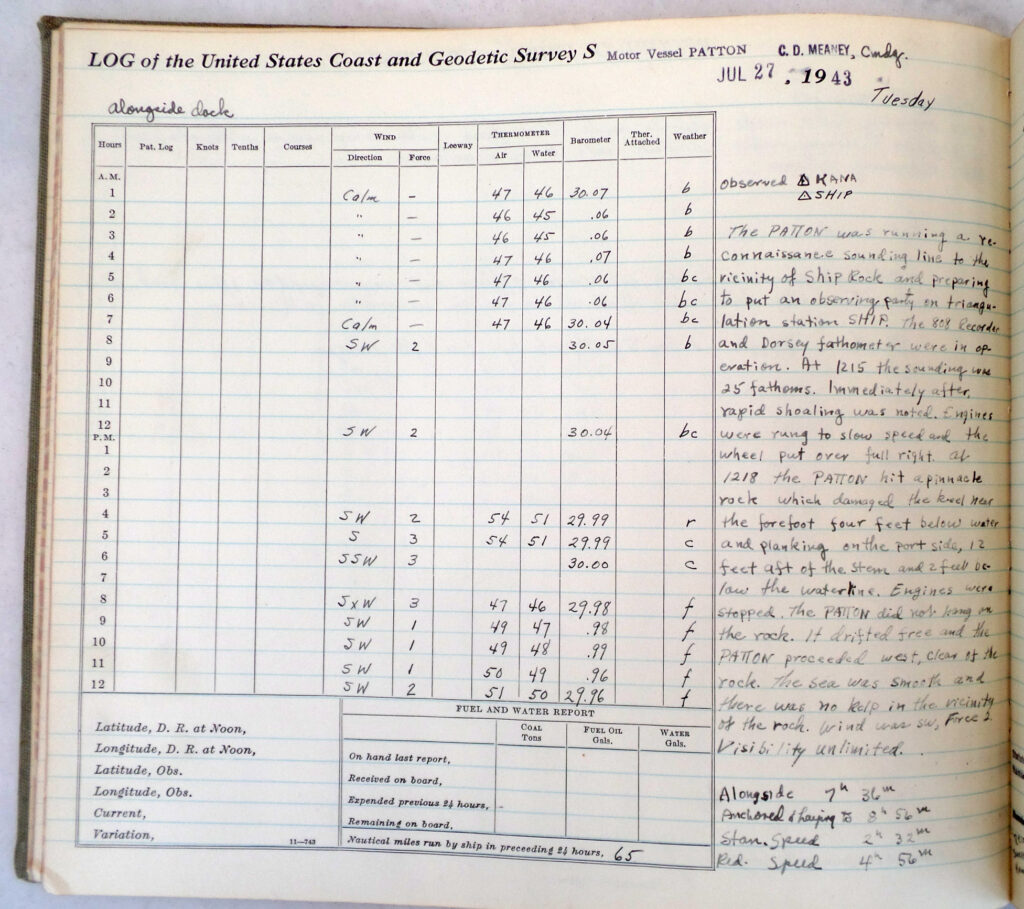 LOG of the United States Coast and Geodetic Survey S Motor Vessel PATTON C. D. MEANEY, Cmdg.
JUL 27, 1943
Tuesday
alongside dock
Hours Pat. Log Knots Tenths Courses WIND Direction Force Leeway THERMOMETER Air Water Barometer Ther. Attached Weather
A.M.
1 Calm – 47 46 30.07 b
2 " – 46 45 .06 b
3 " – 46 45 .06 b
4 " – 47 46 .07 b
5 " – 47 46 .06 bc
6 " – 47 46 .06 bc
7 Calm – 47 46 30.04 bc
8 SW 2 30.05 b
9
10
11
12 SW 2 30.04 bc
P.M.
1
2
3
4 SW 2 54 51 29.99 r
5 S 3 54 51 29.99 c
6 SSW 3 30.00 c
7
8 SxW 3 47 46 29.98 f
9 SW 1 49 47 .98 f
10 SW 1 49 48 .99 f
11 SW 1 50 49 .96 f
12 SW 2 51 50 29.96 f
observed △ KANA
△ SHIP
The PATTON was running a re-
connaissance sounding line to the
vicinity of Ship Rock and preparing
to put an observing party on triangu-
lation station SHIP. The 808 Recorder
and Dorsey fathometer were in op-
eration. At 1215 the sounding was
25 fathoms. Immediately after,
rapid shoaling was noted. Engines
were rung to slow speed and the
wheel put over full right. at
1218 the PATTON hit a pinnacle
rock which damaged the keel near
the forefoot four feet below water
and planking on the port side, 12
feet aft of the stem and 2 feet be-
low the waterline. Engines were
stopped. The PATTON did not hang on
the rock. It drifted free and the
PATTON proceeded west, clear of the
rock. The sea was smooth and
there was no kelp in the vicinity
of the rock. Wind was SW, Force 2.
Visibility unlimited.
Alongside 7h 36m
Anchored & haying to 8h 56m
Stan. Speed 2h 32m
Red. Speed 4h 56m
Latitude, D. R. at Noon,
Longitude, D. R. at Noon,
Latitude, Obs.
Longitude, Obs.
Current,
Variation,
11—743
FUEL AND WATER REPORT
COAL Tons FUEL OIL Gals. WATER Gals.
On hand last report,
Received on board,
Expended previous 24 hours,
Remaining on board,
Nautical miles run by ship in preceeding 24 hours, 65